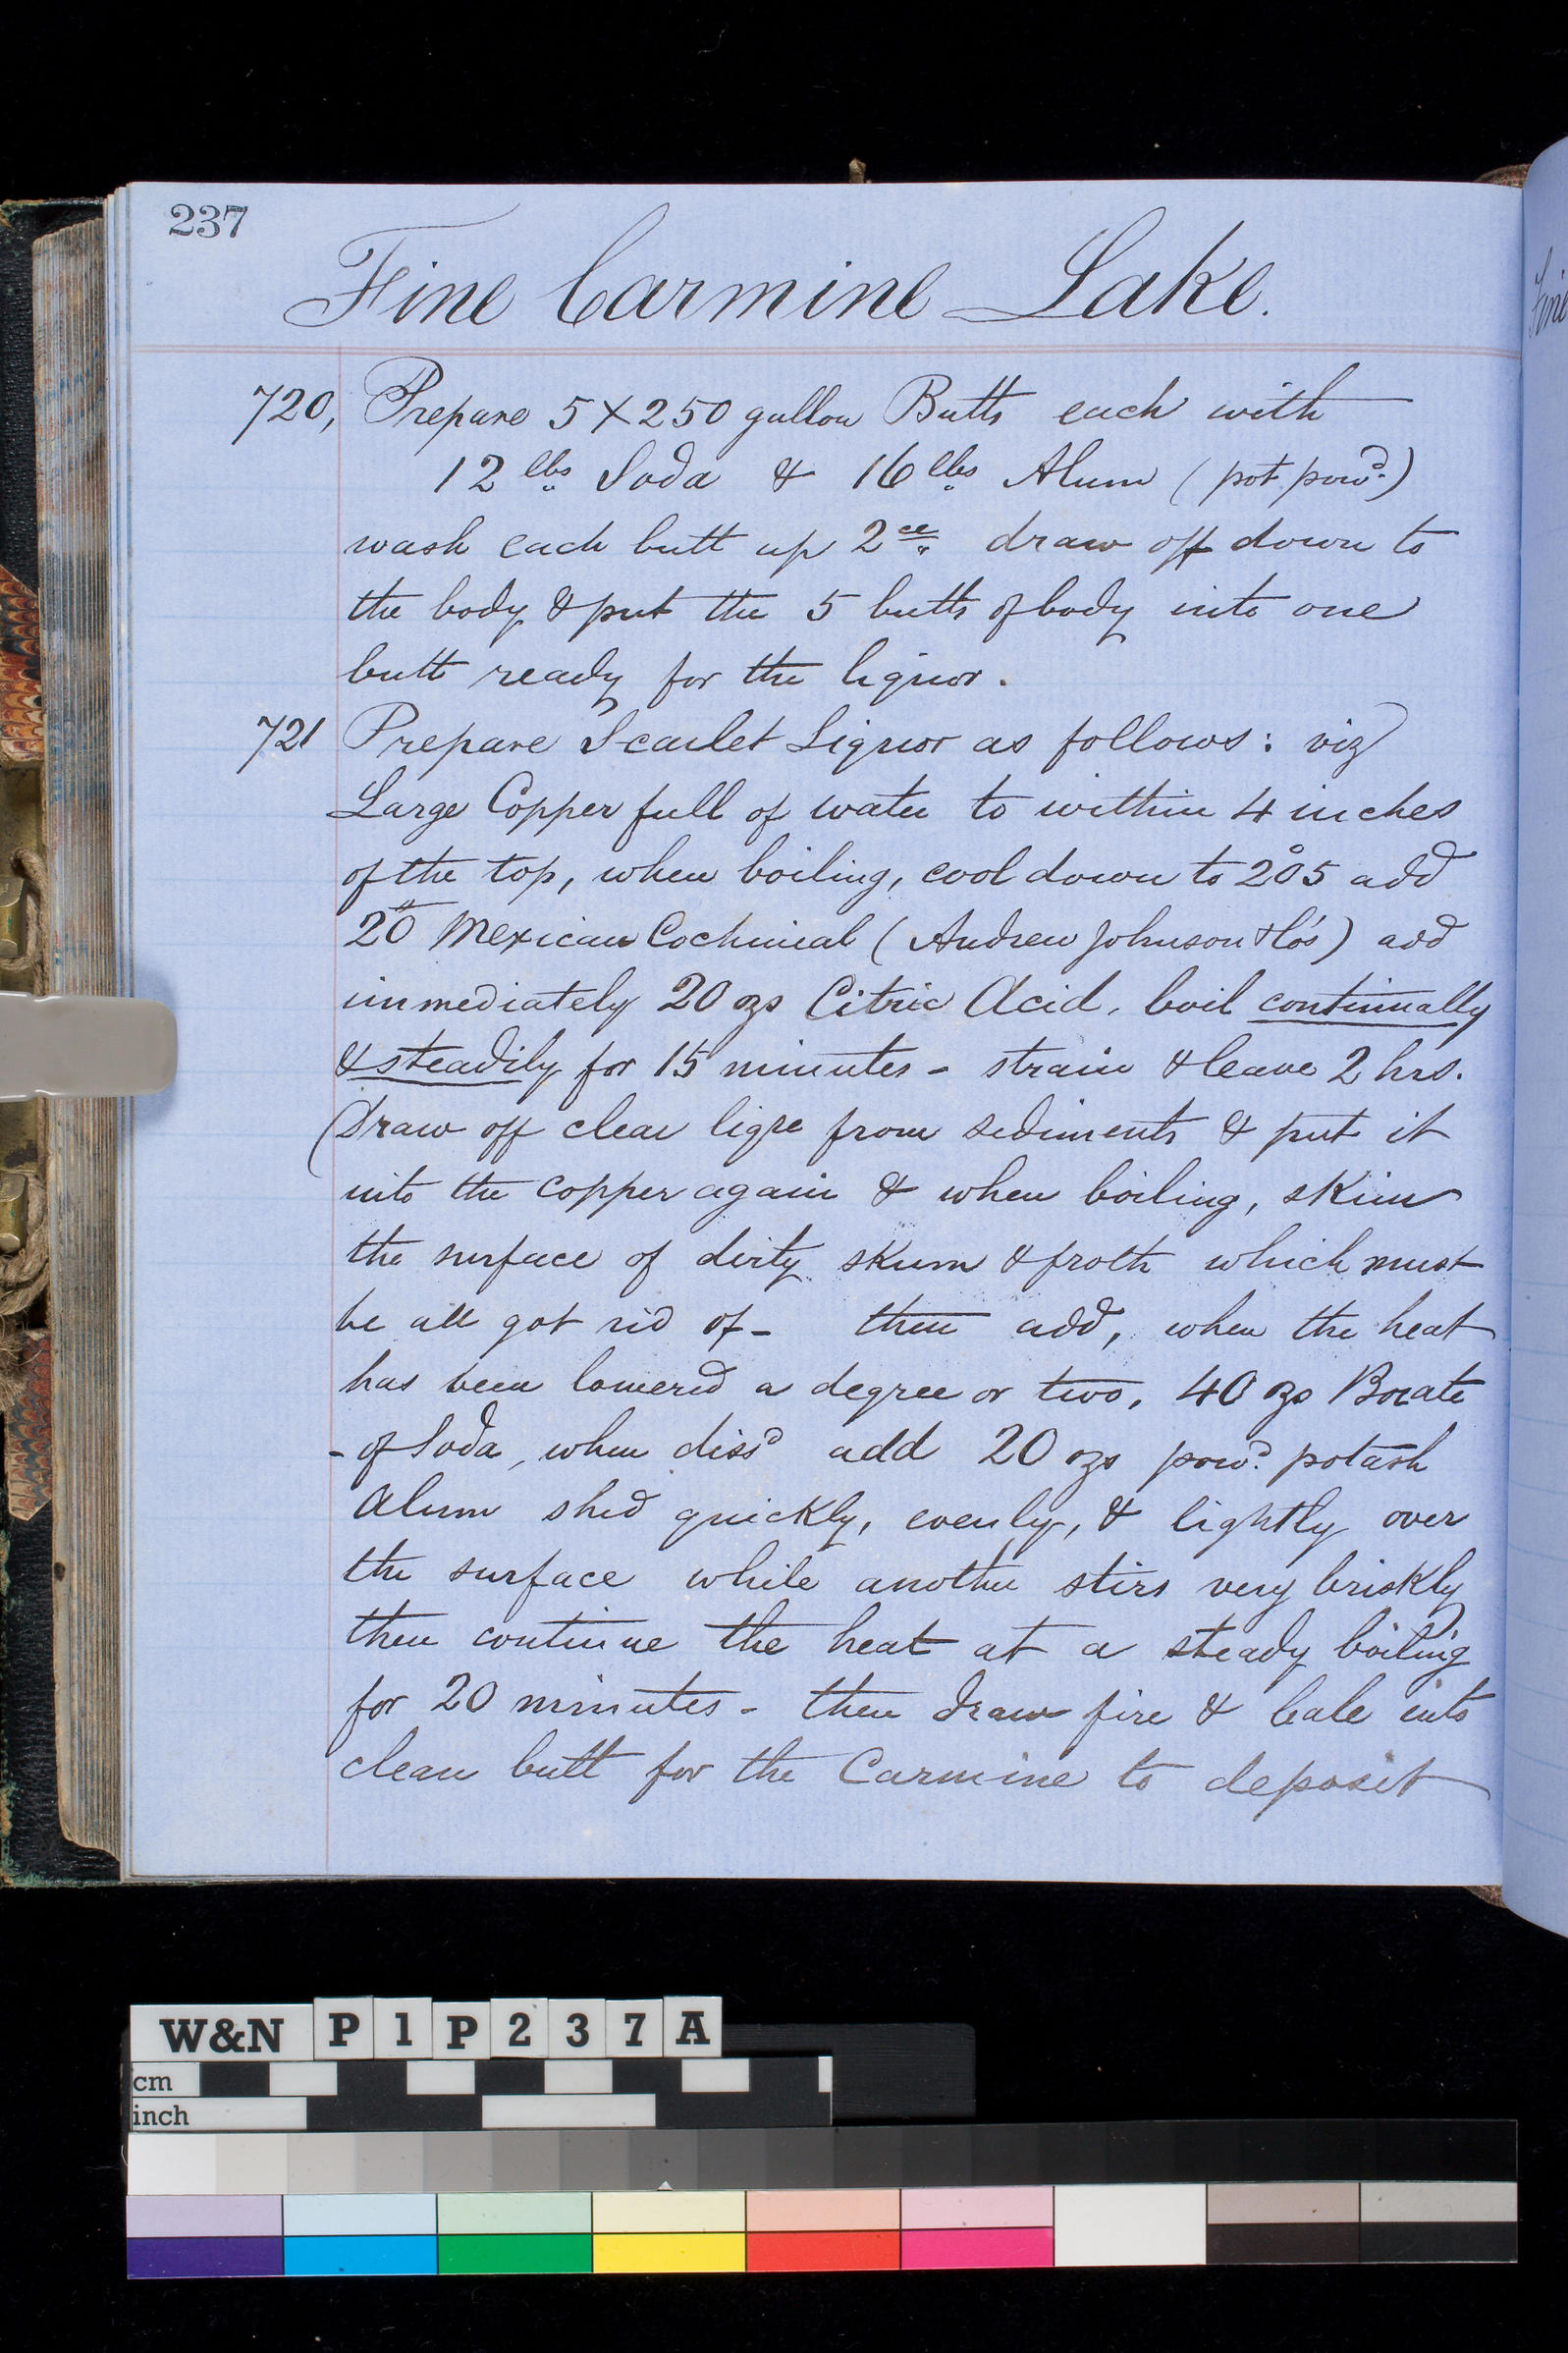 237
Fine Carmine Lake.
720, Prepare 5 X 250 gallon Butts each with
12 lbs Soda & 16 lbs Alum (pot. powd.)
wash each butt up 2ce draw off down to
the body & put the 5 butts of body into one
butt ready for the liquor.
721 Prepare Scarlet Liquor as follows: viz
Large Copper full of water to within 4 inches
of the top, when boiling, cool down to 205° add
20# Mexican Cochineal (Andrew Johnson & Co's) add
immediately 20 ozs Citric Acid, boil continually
& steadily for 15 minutes - strain & leave 2 hrs.
Draw off clear liqre from sediments & put it
into the copper again & when boiling, skim
the surface of dirty skum & froth which must
be all got rid of - then add, when the heat
has been lowered a degree or two, 40 ozs Borate
- of Soda, when dissd add 20 ozs powd. potash
Alum shed quickly, evenly, & lightly over
the surface while another stirs very briskly
then continue the heat at a steady boiling
for 20 minutes - then draw fire & bale into
clean butt for the Carmine to deposit
Fine
W&N P1P237A
cm
inch